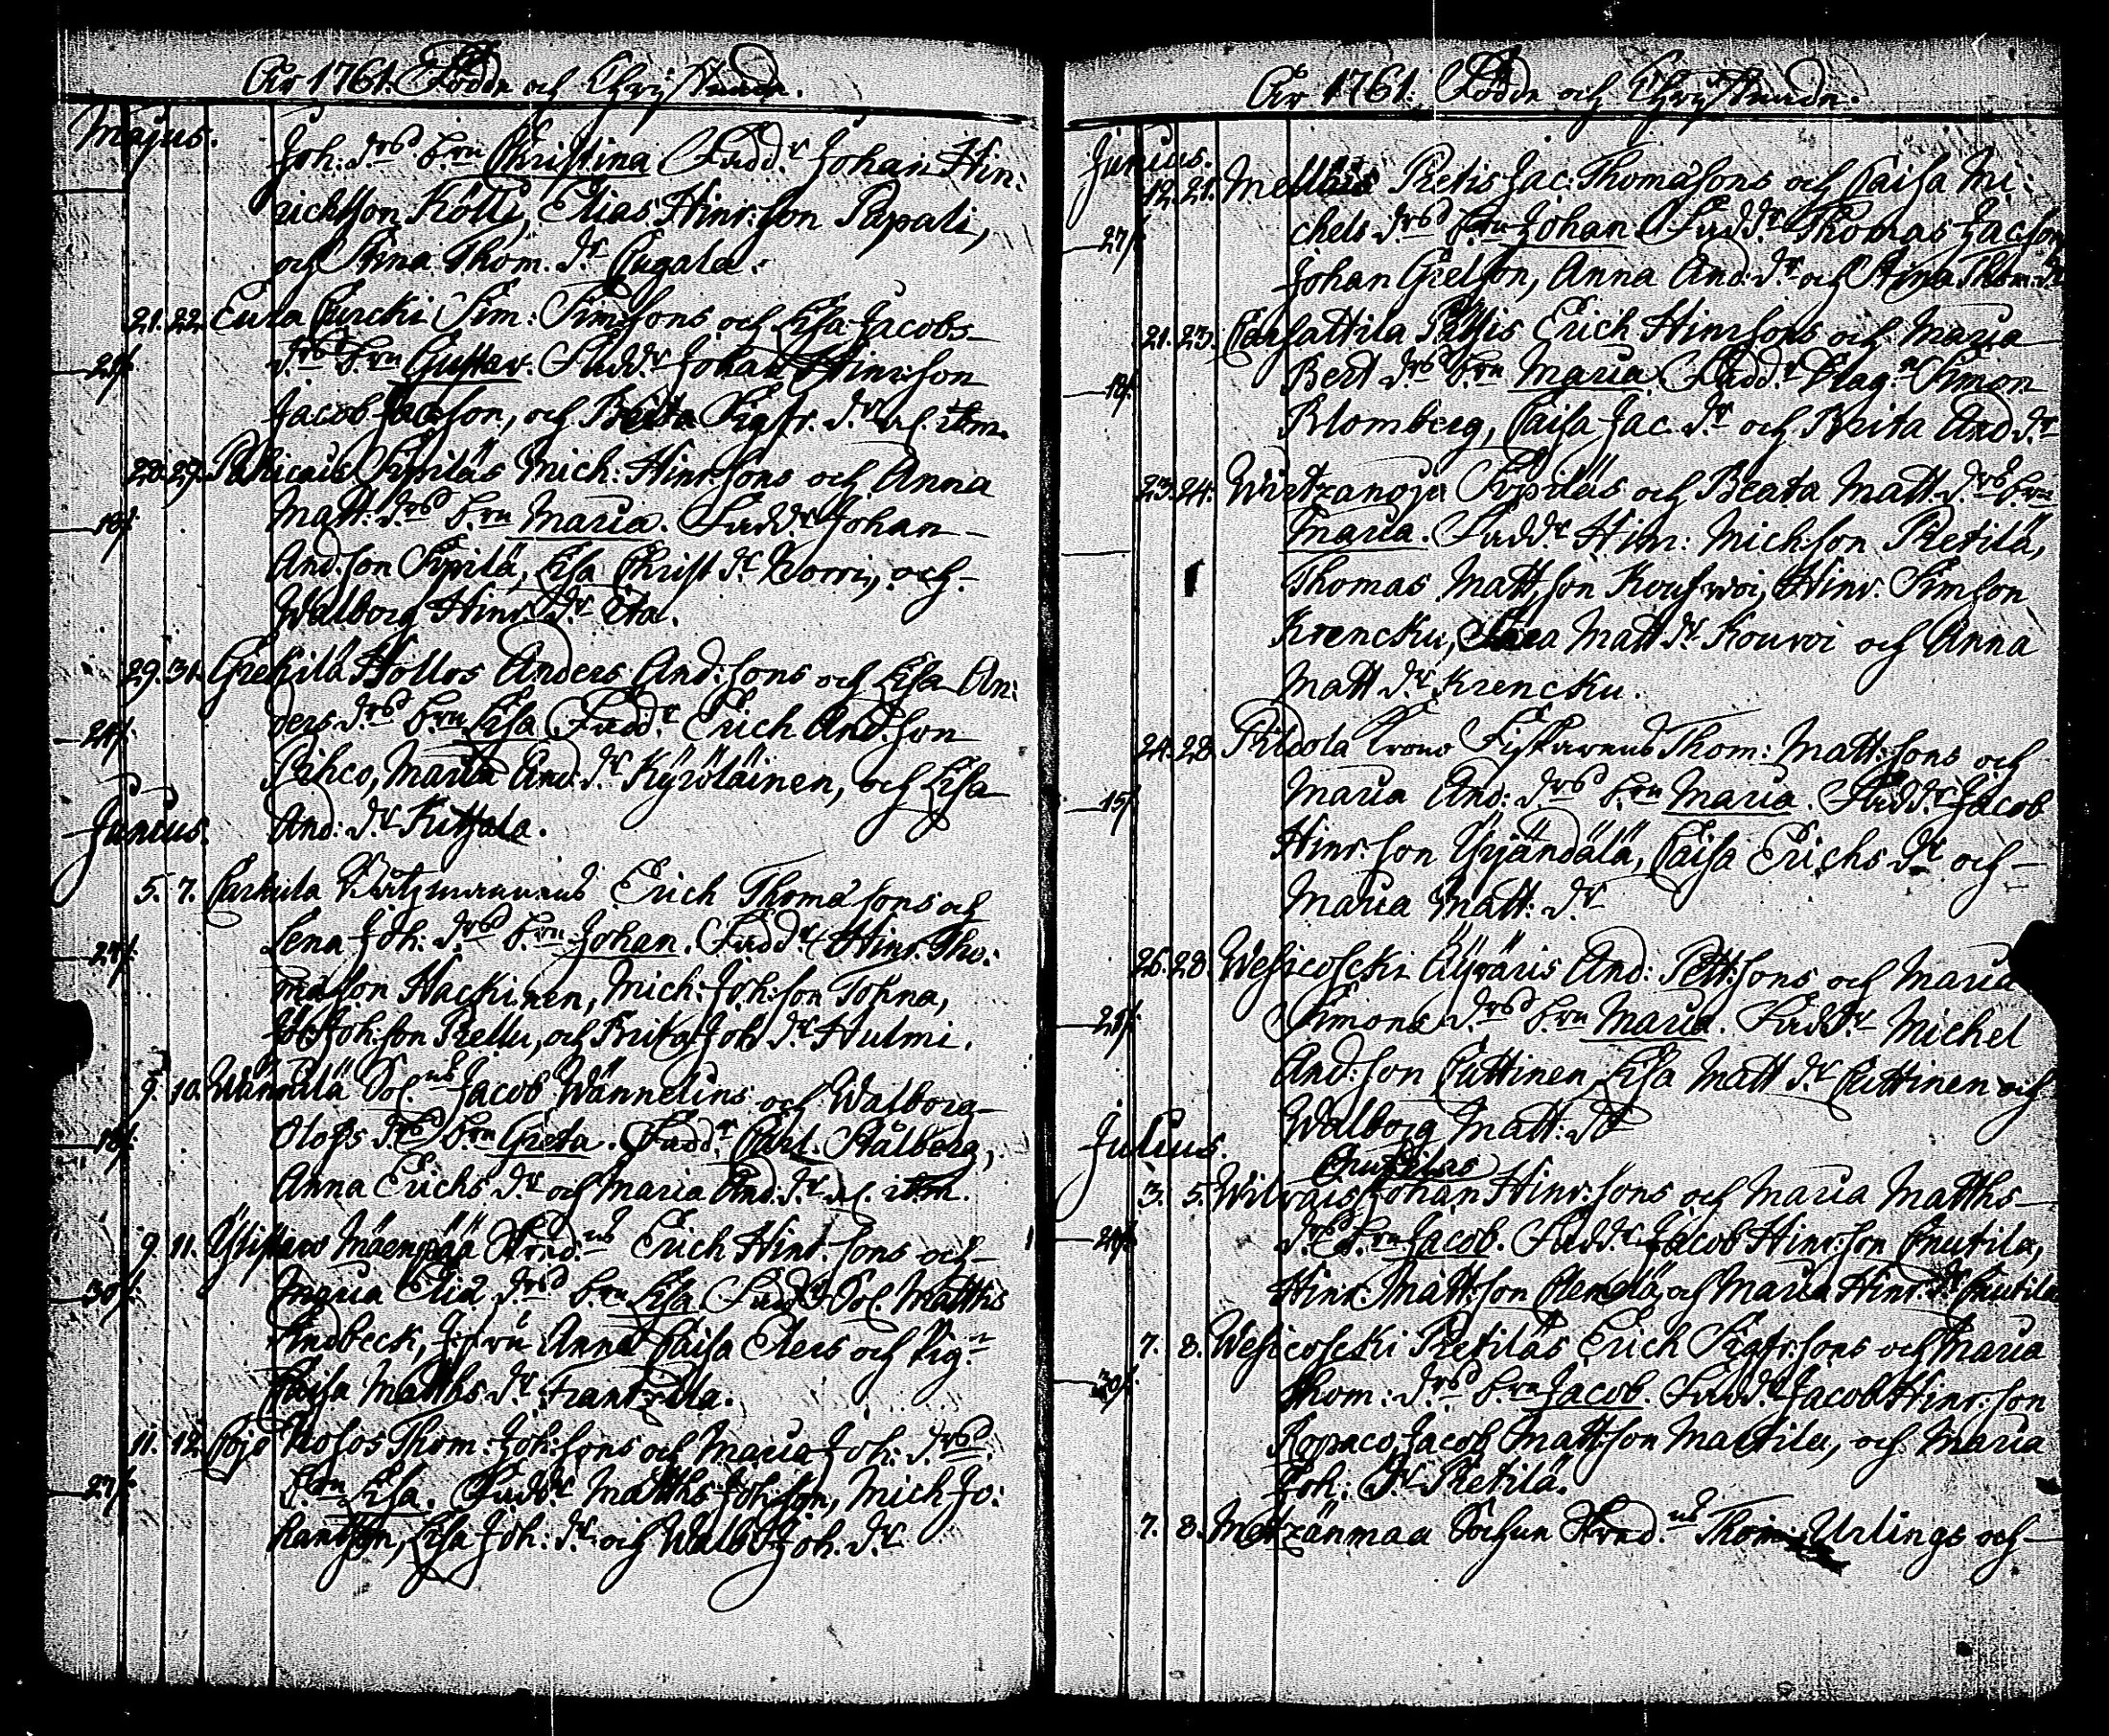 År 1761. Födde och Chrystnade.
Majus.
Joh: drs b:rn Christina Fadd:r Johan Hin:
richsson Kölli, Elias Hinr:son Papali,
och Stina Thom. d:r Cugala.
21. 22. Eura Curcki Sim: Sim:sons och Lisa Jacobs
21/. d:rs b:rn Gustav. Fadd:r Johan Hinr:son
Jacob Jacson, och Beata Sigfr. d:r
28. 29. Sipiläs Mich: Hinr:sons och Anna
18/. Matt: d:rs b:rn Maria. Fadd:r Johan
And:son Sipilä, Lisa Christ d:r Norri, och
Walborg Hinr. d:r Eta.
29. 31. Grekilä Hollos Anders And:sons och Lisa An:
24/. ders d:rs b:rn Lisa Fadd:r Erich And:son
Pihco, Maria And: d:r Kyröläinen, och Lisa
Junius. And: d:r Kuttala.
5. 7. Erich Thomæsons och
27/. Lena Joh: d:rs b:rn Johan. Fadd:r Hinr. Tho:
mæson Hackinen, Mich: Joh:son Tohna,
Joh:son Rellu, och Brita Joh d:r Hulmi.
9. 10. Wännilä Sol:ns Jacob Wännelins och Walborg
18/. Olofs d:rs b:rn Greta. Fadd:r Carl Stålberg,
Anna Erichs d:r och Maria And. d:r
9. 11. Ylistaro Mäenpää Erich Hinr:sons och
30/. Maria Eliæ d:rs b:rn Lisa Fadd:r Sol. Matths
Lindbeck, J:fru Anna Caisa Elers och Pig:n
Caisa Matths d:r Frantzila.
11. 12. Cojo Rosos Thom: Joh:sons och Maria Joh: d:rs
27/. b:rn Lisa. Fadd:r Matths Joh:son, Mich Jo:
hansson, Lisa Joh: d:r och Walb Joh. d:r
År 1761. Födde och Chrystnade.
Junius.
12. 21. Mellilä Retis Jac: Thomæsons och Caisa Mi:
27/. chels d:rs b:rn Johan Fadd:r Thomas Jacson
Johan Grelson, Anna And: d:r och Stina Thom: d:r
21. 23. Carhattila Pättis Erich Hinrsons och Maria
18/. Bert d:rs b:rn Maria. Fadd:r Simon
Blomberg, Caisa Jac. d:r och Brita And d:r
23. 24. Wirtzanoja Sipiläs och Beata Matt. d:rs b:rn
Maria. Fadd:r Hinr: Mich:son Retilä,
Thomas Matt:son Kouhwoi, Hinr. Simson
Krencku, Matt d:r Kouvoi och Anna
Matt d:r Krencku.
24. 28. Pilcola Thom: Matt:sons och
15/. Maria And: d:rs b:rn Maria. Fadd:r Jacob
Hinr:son Yrjändälä, Caisa Erichs d:r och
Maria Matt: d:r
26. 28. Wesicoscki Kyräris And: Pett:sons och Maria
21/. Simons d:rs b:rn Maria. Fadd:r Michel
And:son Puttinen, Lisa Matt d:r Puttinen och
Walborg Matt: d:r
Julius.
Cnutilas
3. 5. Wilvais Johan Hinr:sons och Maria Matths
d:rs b:rn Jacob. Fadd:r Jacob Hinr:son Cnutila,
Hinr: Matt:son Clemelä, och Maria Hinr: d:r Cnutila
7. 8. Wesicoscki Retiläs Erich Sigfr:sons och Maria
30/. Thom: d:rs b:rn Jacob. Fadd:r Jacob Hinr:son
Ropaco, Jacob Matt:son Martila, och Maria
Joh: d:r Retilä.
7. 8. Metzänmaa Thom: Urlings och